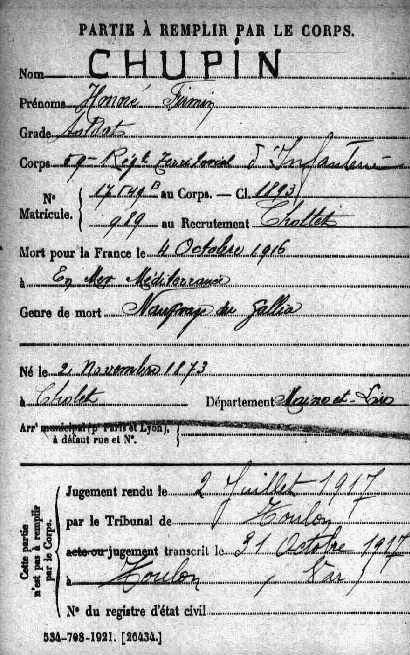 PARTIE À REMPLIR PAR LE CORPS.
Nom CHUPIN
Prénoms Honoré Firmin
Grade Soldat
Corps 59e Régt Territorial d'Infanterie
N° Matricule. { 17549 au Corps. — Cl. 1893
989 au Recrutement Chollet
Mort pour la France le 4 Octobre 1916
à En Mer Méditerranée
Genre de mort Naufrage du Gallia
Né le 2 Novembre 1873
à Cholet Département Maine-et-Loire
Arrt municipal (pr Paris et Lyon), à défaut rue et N°.
Cette partie n'est pas à remplir par le Corps.
Jugement rendu le 2 Juillet 1917
par le Tribunal de Toulon
acte ou jugement transcrit le 31 Octobre 1917
à Toulon (Var)
N° du registre d'état civil
534-708-1921. [26434.]